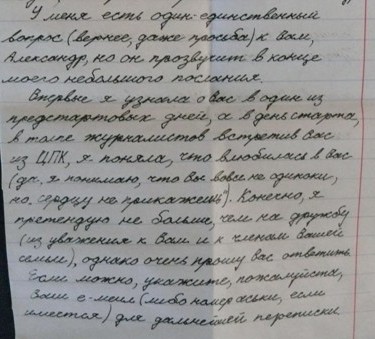 У меня есть один-единственный
вопрос (вернее, даже просьба) к Вам,
Александр, но он прозвучит в конце
моего небольшого послания.
Впервые я узнала о вас в один из
предстартовых дней, а в день старта,
в толпе журналистов встретив Вас
из ЦПК, я поняла, что влюбилась в вас
(да, я понимаю, что Вы вовсе не одиноки,
но „сердцу не прикажешь"). Конечно, я
претендую не больше, чем на дружбу
(из уважения к Вам и к членам Вашей
семьи), однако очень прошу вас ответить.
Если можно, укажите, пожалуйста,
Ваш е-меил (либо номер аськи, если
имеется) для дальнейшей переписки